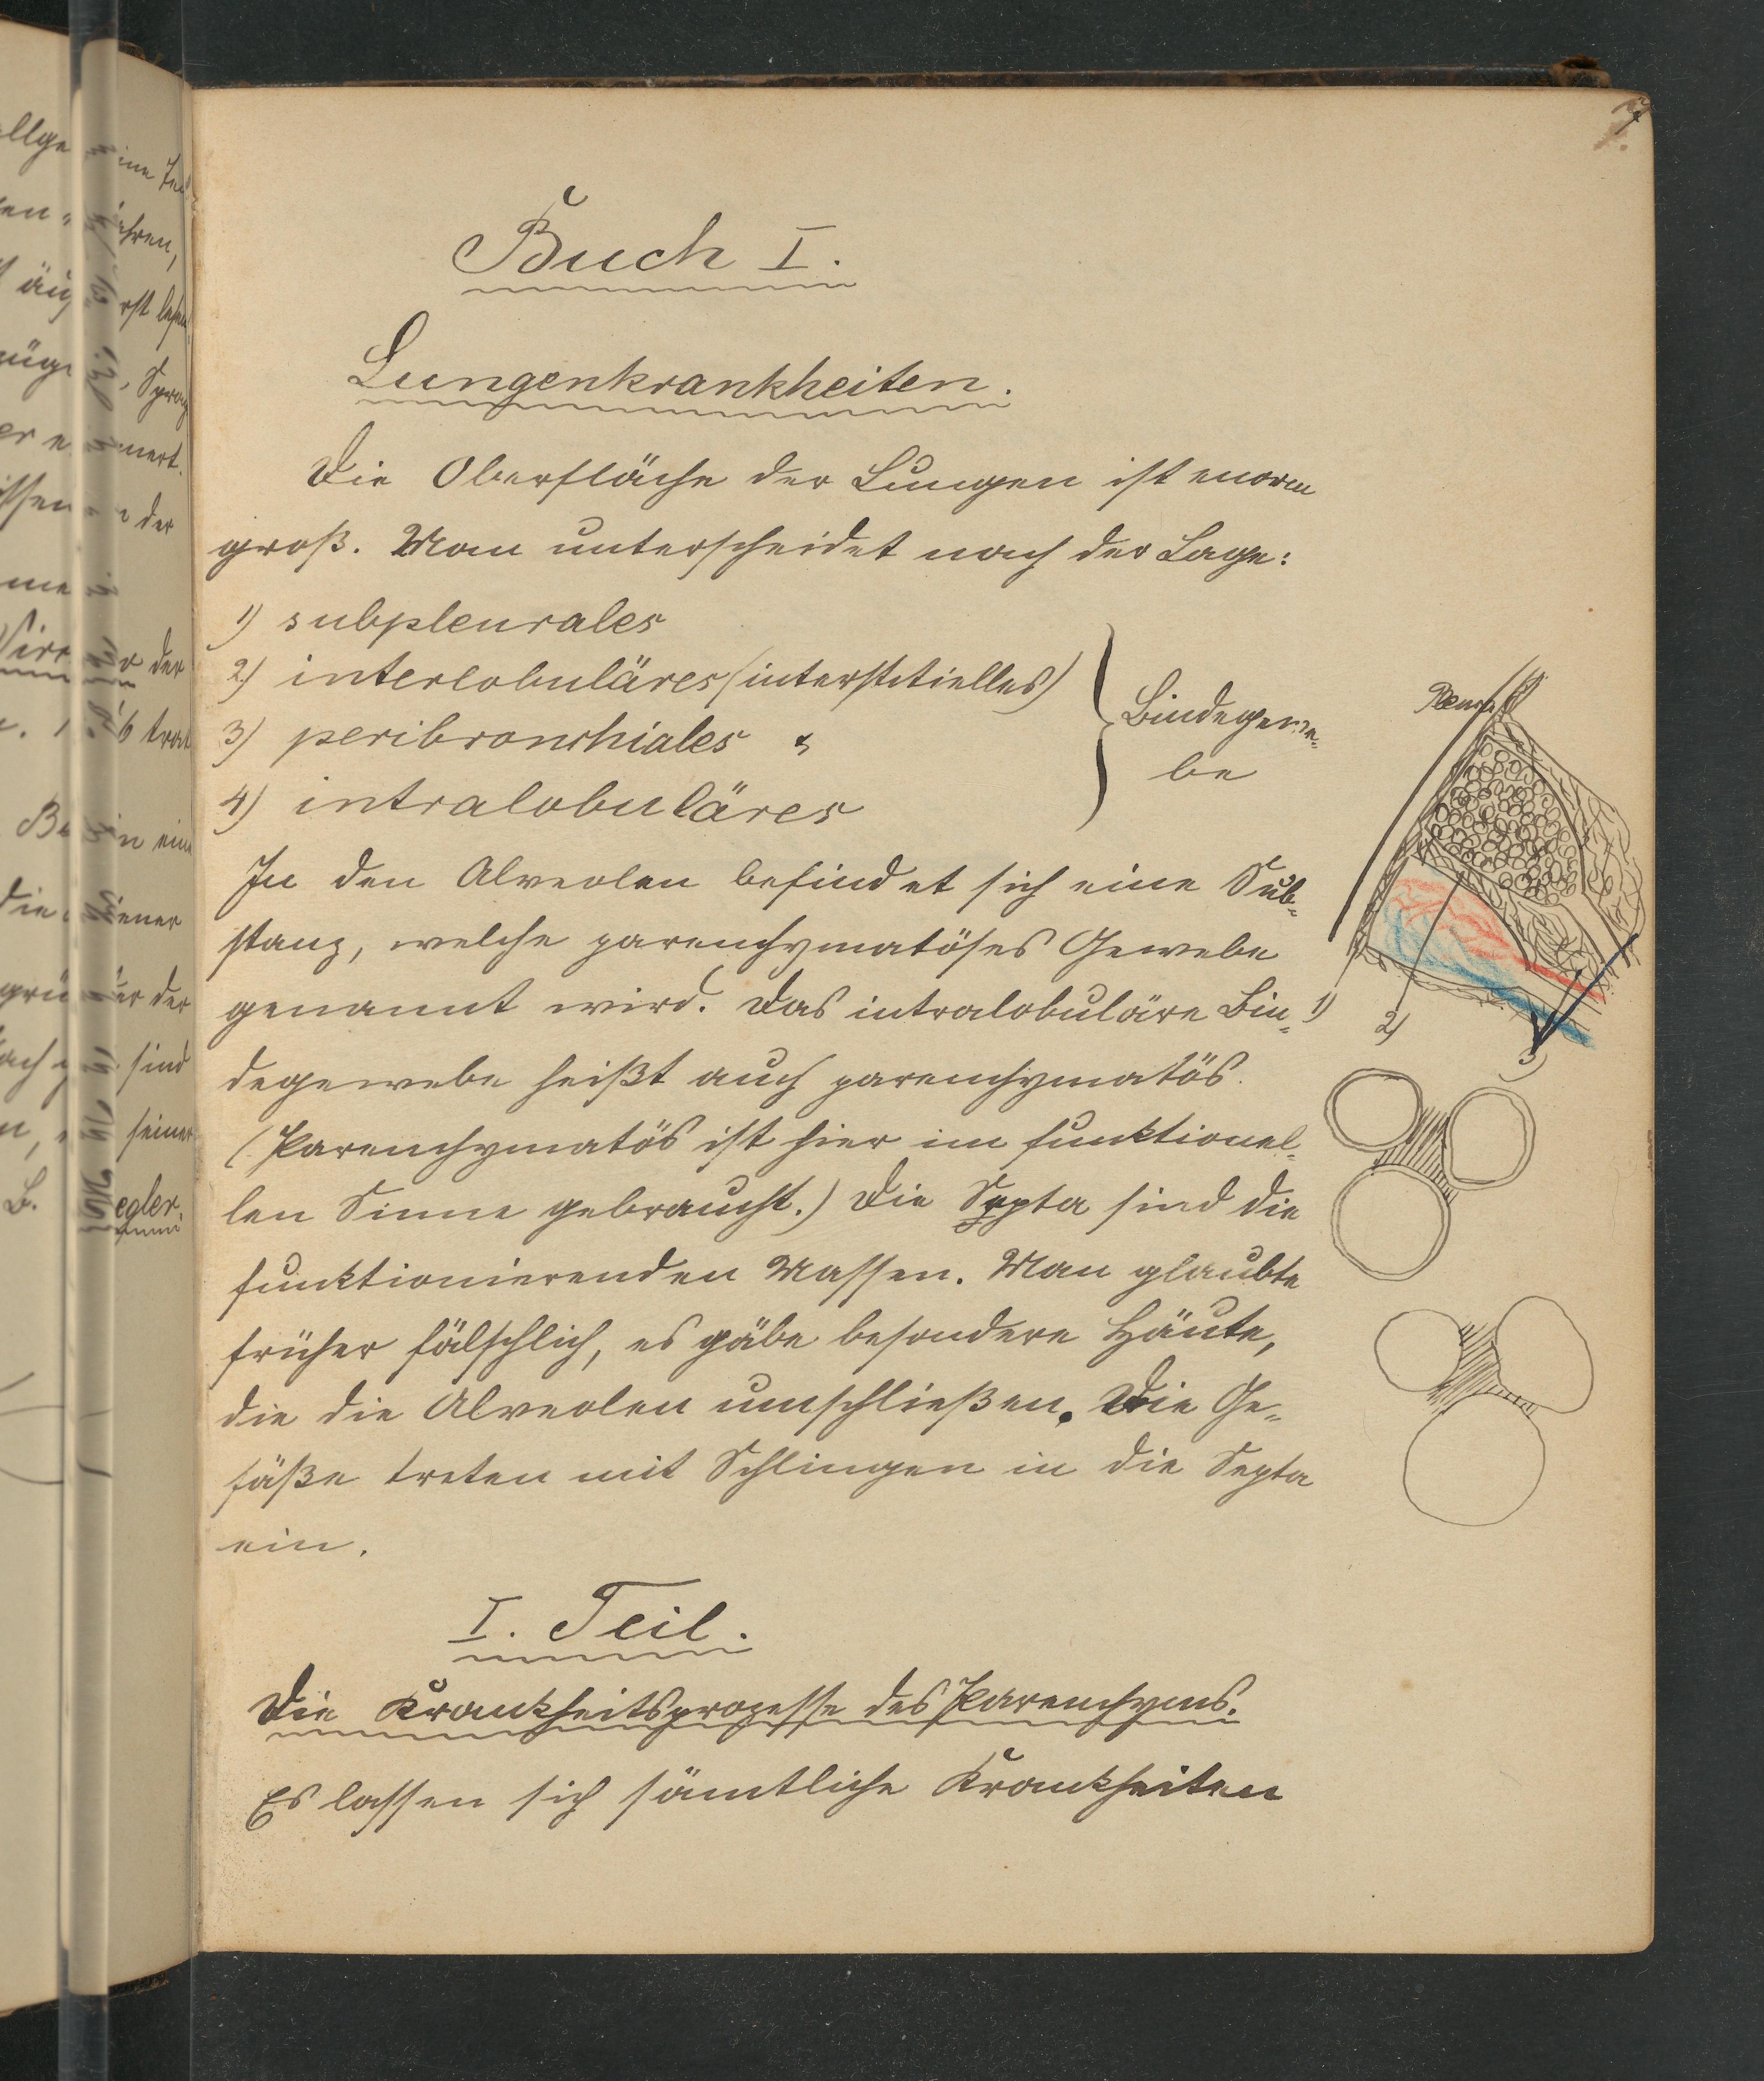 7.
Buch I.
Lungenkrankheiten.
Die Oberfläche der Lungen ist enorm
groß. Man unterscheidet nach der Lage:
1) subpleurales
2) interlobuläres (interstitielles)
3) peribronchiales &
4) intralobuläres
Bindegewe-
be
Pleura
In den Alveolen befindet sich eine Sub-
stanz, welche parenchymatöses Gewebe
genannt wird. Das intralobuläre Bin-
degewebe heißt auch parenchymatös.
(Parenchymatös ist hier im funktionel-
len Sinne gebraucht.) Die Septa sind die
funktionierenden Massen. Man glaubte
früher fälschlich, es gäbe besondere Häute,
die die Alveolen umschließen. Die Ge-
fäße treten mit Schlingen in die Septa
ein.
1)
2)
3)
I. Teil.
Die Krankheitsprozesse des Parenchyms.
Es lassen sich sämtliche Krankheiten